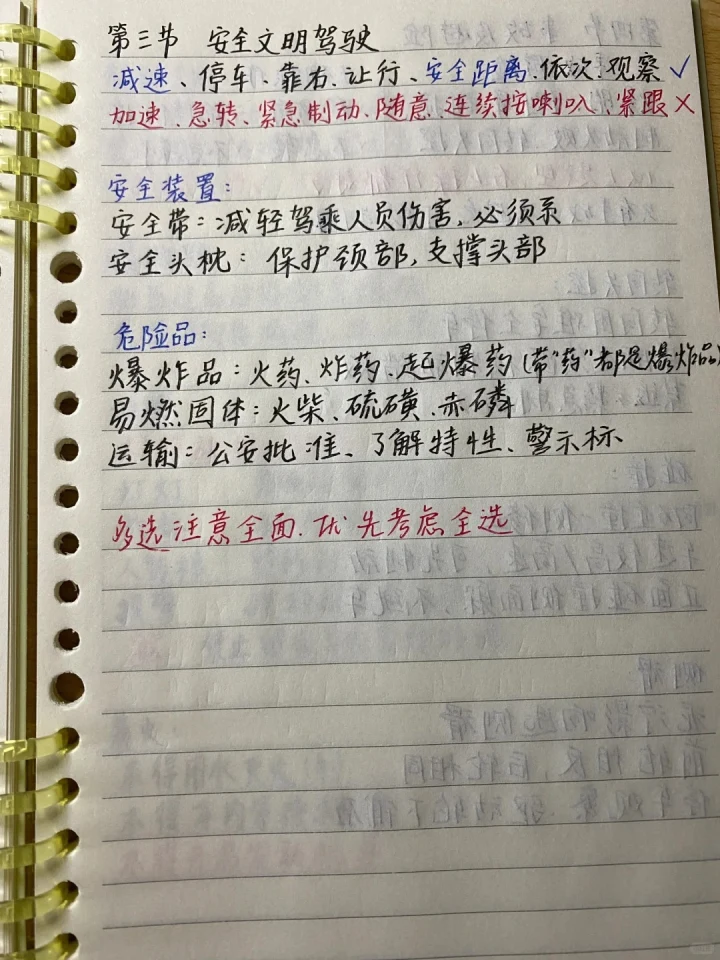 第三节 安全文明驾驶
减速、停车、靠右、让行、安全距离、依次、观察 ✓
加速、急转、紧急制动、随意、连续按喇叭、紧跟 ×
安全装置:
安全带:减轻驾乘人员伤害,必须系
安全头枕:保护颈部,支撑头部
危险品:
爆炸品:火药、炸药、起爆药(带“药”都是爆炸品)
易燃固体:火柴、硫磺、赤磷
运输:公安批准、了解特性、警示标
多选注意全面.优先考虑全选